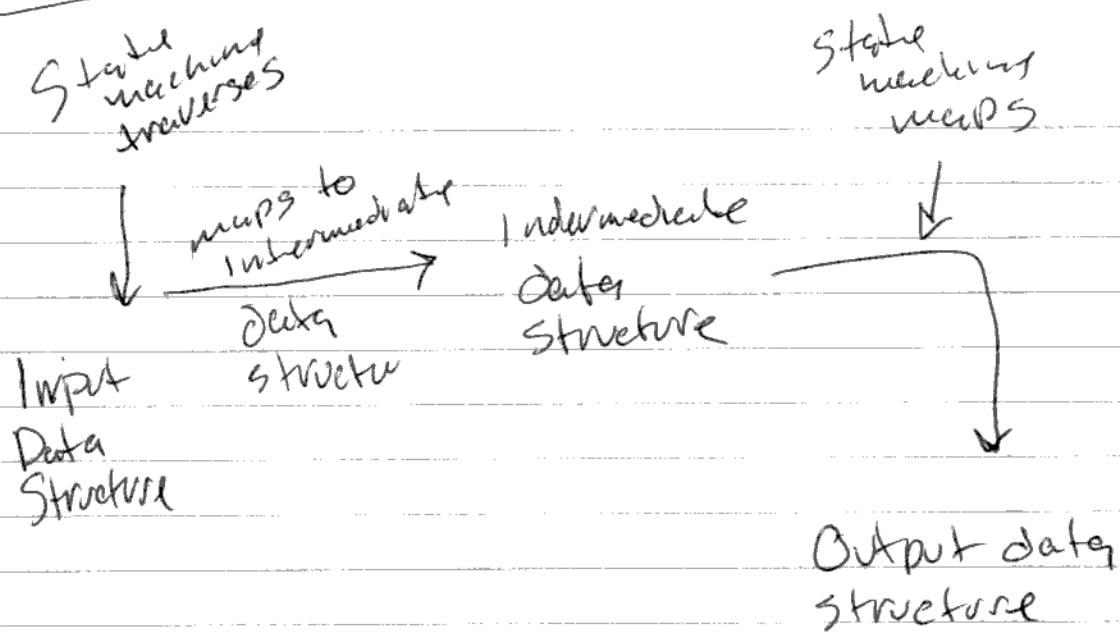 State
machine
traverses
maps to
intermediate
data
structu
Input
Data
Structure
Indermediate
data
structure
State
machine
maps
Output data
structure